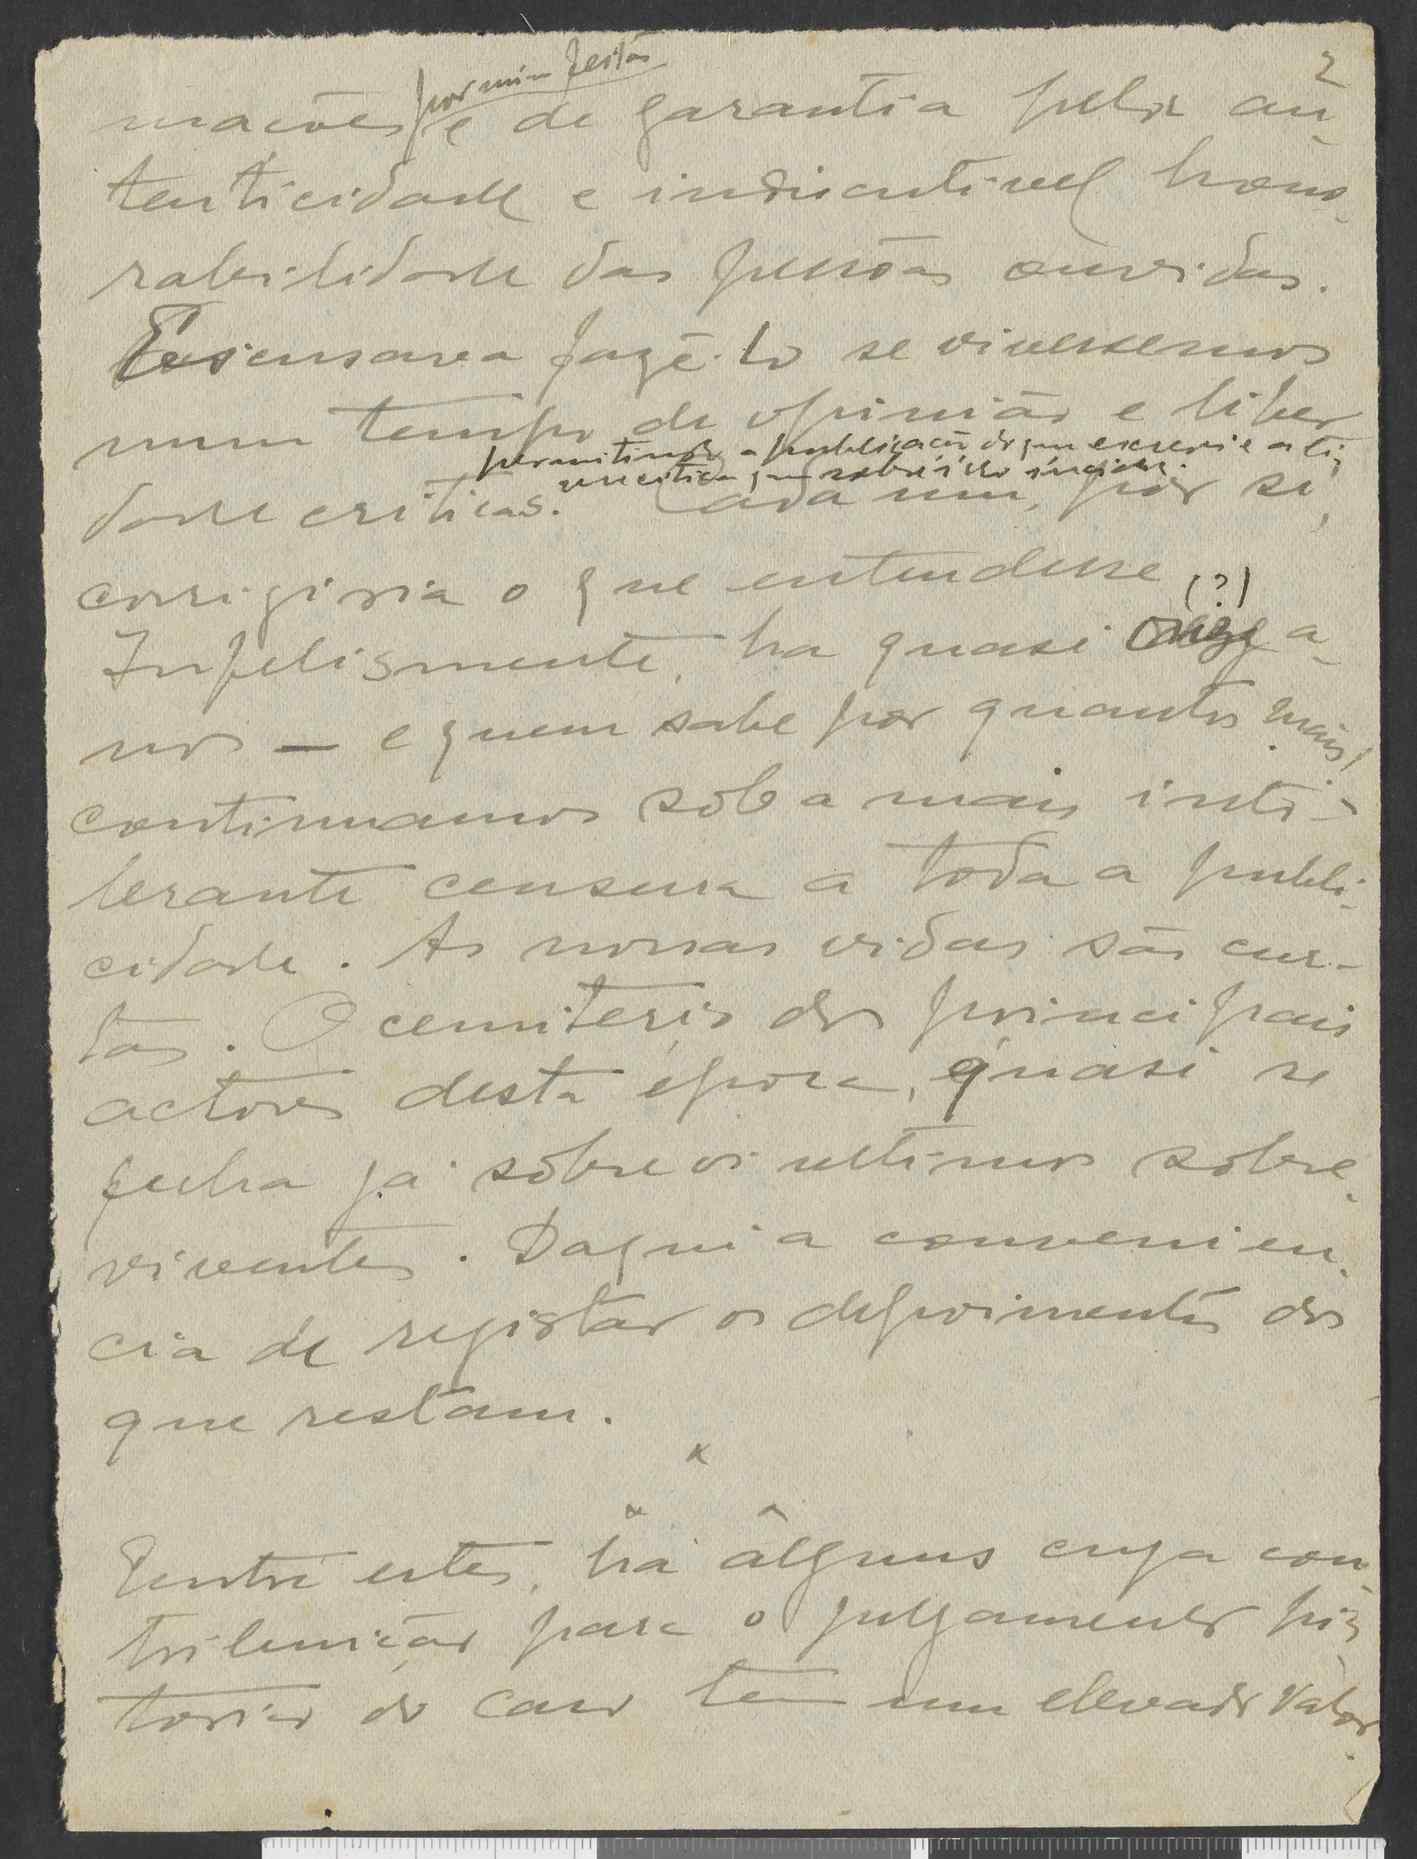 2
por mim feitas
mações e de garantia pela au-
tenticidade e indiscutivel hono-
rabilidade das pessôas ouvidas.
fazê-lo se vivessemos
num tempo de opinião e liber
permitindo a publicação do que escrevi e a li-
que sobre isso incidisse.
dade criticas. Cada um, por si,
corrigiria o que entendesse
(?)
Infelismente, ha quasi a-
nos — e quem sabe por quantos mais!
continuamos sob a mais into-
lerante censura a toda a publi-
cidade. As nossas vidas são cur-
tas. O cemiterio dos principais
actores desta época, quasi se
fecha já sôbre os ultimos sobre-
viventes. Daqui a convenien-
cia de registar os depoimentos dos
que restam.
x
x x
Entre estes, há alguns cuja con-
tribuição para o julgamento his-
torico do caso tem um elevado valor.